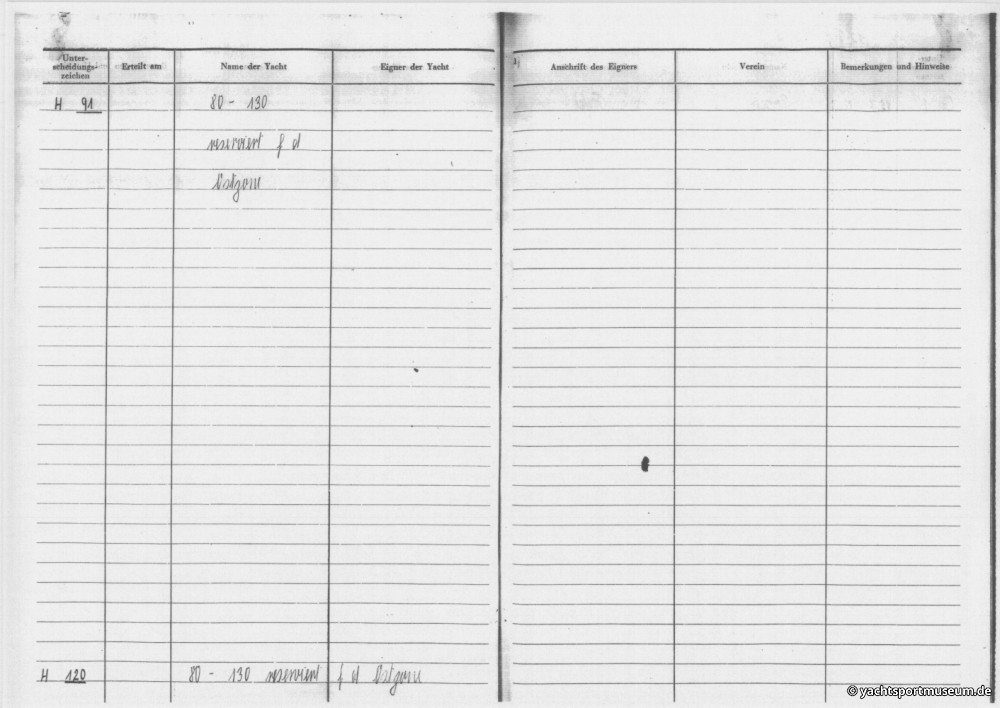 Unter-
scheidungs-
zeichen
Erteilt am
Name der Yacht
Eigner der Yacht
Anschrift des Eigners
Verein
Bemerkungen und Hinweise
H 91
80 - 130
reserviert f d
Ostzone
H 120 80 - 130 reserviert f d Ostzone
© yachtsportmuseum.de